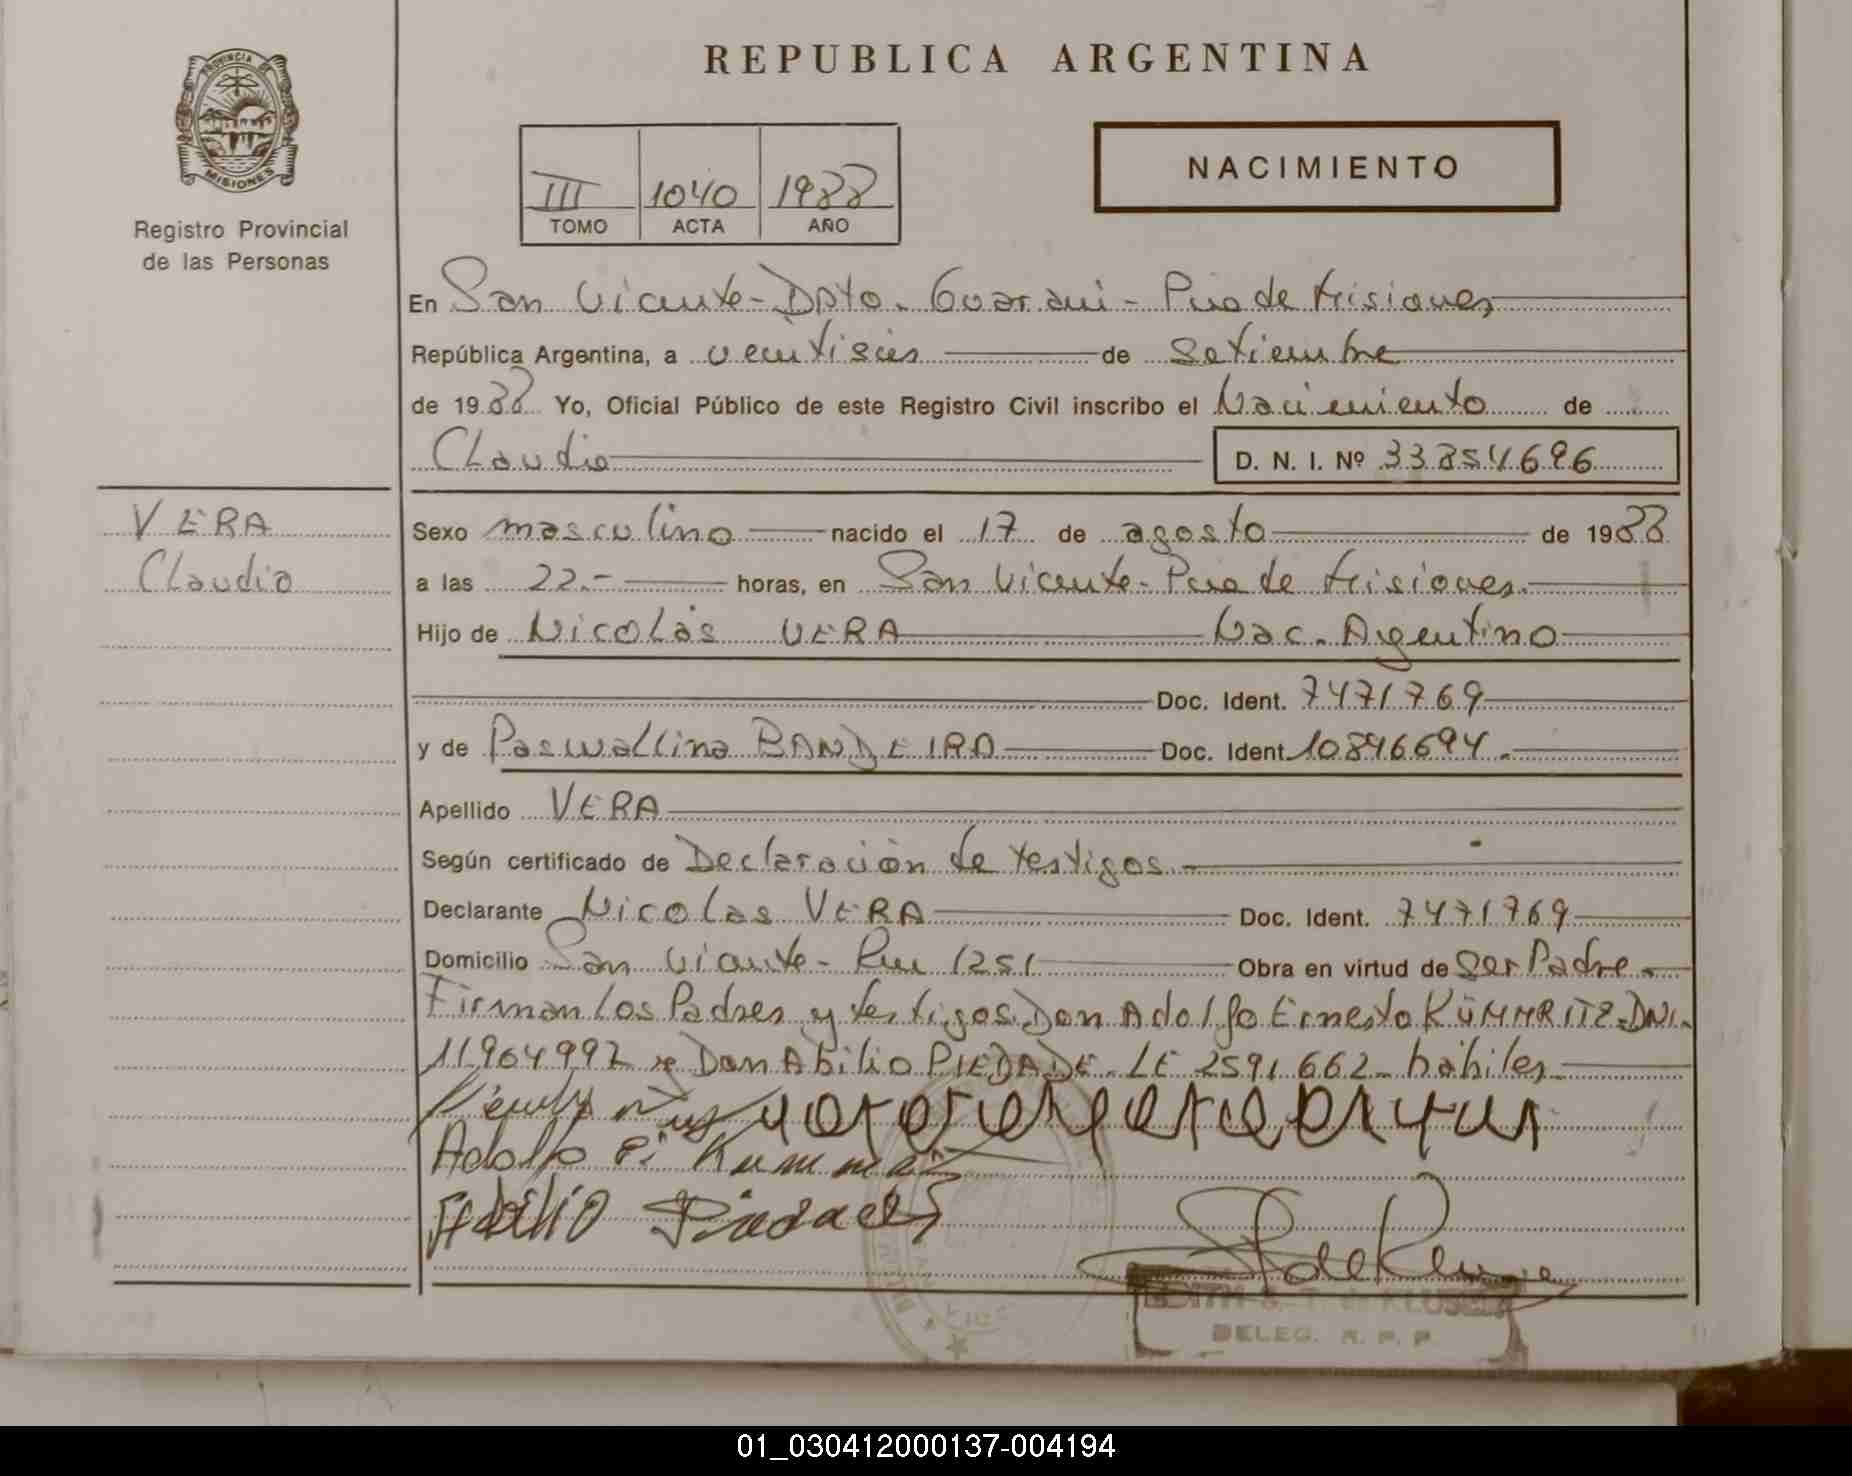 REPUBLICA ARGENTINA
PROVINCIA DE
MISIONES
Registro Provincial
de las Personas
III 1040 1988
TOMO ACTA AÑO
NACIMIENTO
En San Vicente - Dpto. Guaraní - Pcia de Misiones
República Argentina, a veintiseis de setiembre
de 1988 Yo, Oficial Público de este Registro Civil inscribo el Nacimiento de
Claudio D. N. I. Nº 33854696
VERA
Claudio
Sexo masculino nacido el 17 de agosto de 1988
a las 22.- horas, en San Vicente - Pcia de Misiones.
Hijo de Nicolás VERA Nac. Argentino
Doc. Ident. 7471769
y de Paswallina BANDEIRA Doc. Ident 10846694.
Apellido VERA
Según certificado de Declaración de testigos.-
Declarante Nicolas VERA Doc. Ident. 7471769
Domicilio San Vicente - Km 1251 Obra en virtud de ser Padre.-
Firman los Padres y testigos Don Adolfo Ernesto KÜMMRITZ - DNI.
11904992 y Don Abilio PIEDADE - LE 2591662 - hábiles
Adolfo E.
Abilio Piedade
EDITH S. T. de KLUSE
DELEG. R. P. P.
01_030412000137-004194